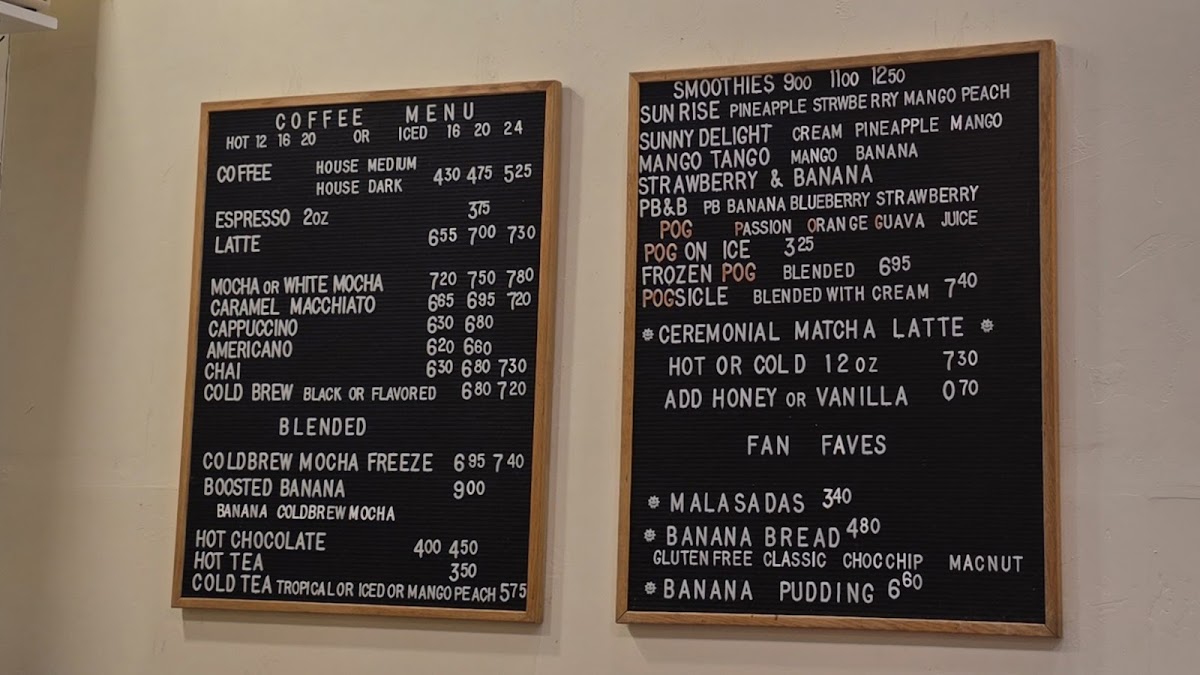 COFFEE MENU
HOT 12 16 20 OR ICED 16 20 24
COFFEE HOUSE MEDIUM HOUSE DARK 430 475 525
ESPRESSO 2oz 375
LATTE 655 700 730
MOCHA OR WHITE MOCHA 720 750 780
CARAMEL MACCHIATO 665 695 720
CAPPUCCINO 630 680
AMERICANO 620 660
CHAI 630 680 730
COLD BREW BLACK OR FLAVORED 680 720
BLENDED
COLDBREW MOCHA FREEZE 695 740
BOOSTED BANANA 900
BANANA COLDBREW MOCHA
HOT CHOCOLATE 400 450
HOT TEA 350
COLD TEA TROPICAL OR ICED OR MANGO PEACH 575
SMOOTHIES 900 1100 1250
SUNRISE PINEAPPLE STRWBERRY MANGO PEACH
SUNNY DELIGHT CREAM PINEAPPLE MANGO
MANGO TANGO MANGO BANANA
STRAWBERRY & BANANA
PB&B PB BANANA BLUEBERRY STRAWBERRY
POG PASSION ORANGE GUAVA JUICE
POG ON ICE 325
FROZEN POG BLENDED 695
POGSICLE BLENDED WITH CREAM 740
CEREMONIAL MATCHA LATTE
HOT OR COLD 12oz 730
ADD HONEY OR VANILLA 070
FAN FAVES
MALASADAS 340
BANANA BREAD 480
GLUTEN FREE CLASSIC CHOCCHIP MACNUT
BANANA PUDDING 660